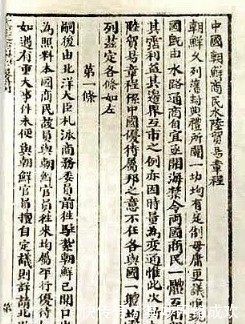 中國朝鮮商民水陸貿易章程
朝鮮久列藩封典禮所關一切均有定制毋庸更議
國民由水路通商自宜亟開海禁令兩國商民一體互相
其霑利益其邊界互市之例亦因時量為變通惟此次
陸貿易章程係中國優待屬邦之意不在各與國一體均
列茲定各條如左
第一條
嗣後由北洋大臣札派商務委員前往駐紮朝鮮已開口
為照料本國商民該員與朝鮮官員往來均屬平行優待
如遇有重大事件未便與朝鮮官員擅自定議則詳請北
第